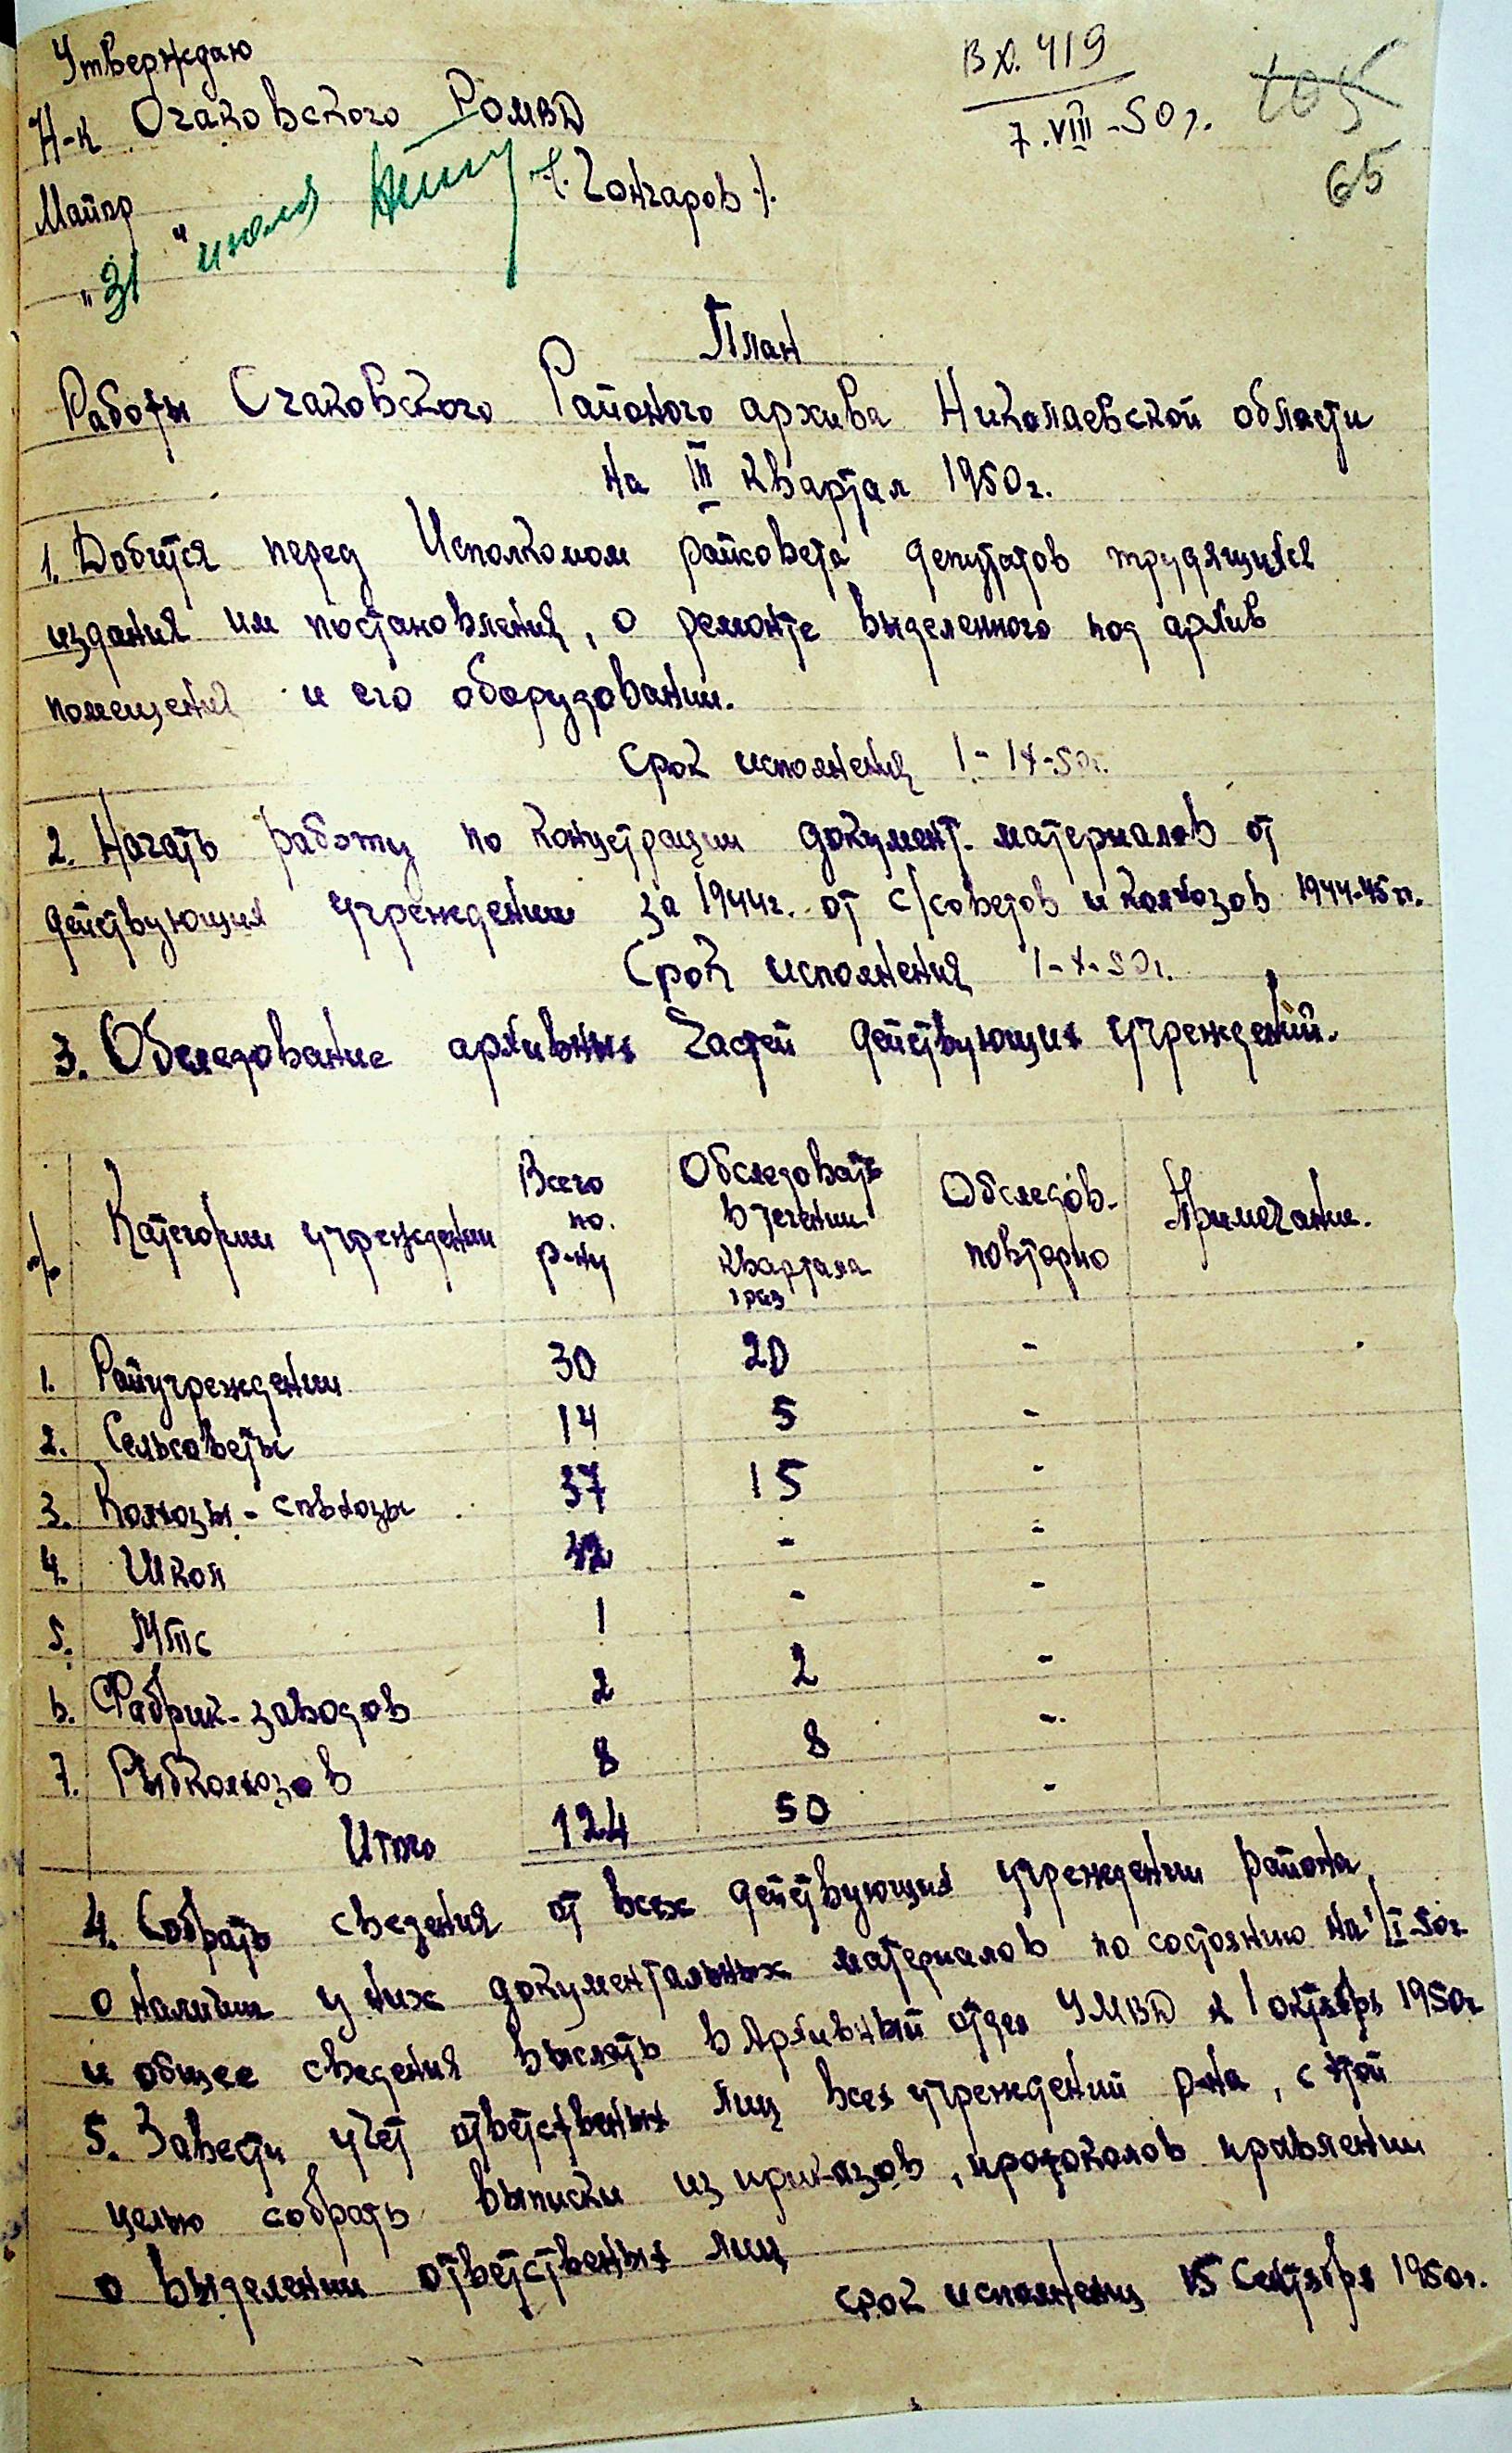 Утверждаю
Н-к Очаковского РОМВД
Майор /. Гончаров ./.
"31" июля
Вх. 419
7.VIII-50г.
105
65
План
Работы Очаковского Районого архива Николаевской области
на III квартал 1950г.
1. Добится перед Исполкомом райсовета депутатов трудящихся
издания им постановления, о ремонте выделенного под архив
помещения и его оборудовании.
Срок исполнения 1-IX-50г.
2. Начать работу по концетрации документ. материалов от
действующих учреждении за 1944г. от с/советов и колхозов 1944-45гг.
Срок исполнения 1-X-50г.
3. Обследование архивных частей действующих учреждений.
Категории учреждении Всего по. р-ну Обследовать в течении квартала 1 раз Обследов. повторно Примечании.
1. Райучреждении 30 20 -
2. Сельсоветы 14 5 -
3. Колхозы - совхозы 37 15 -
4. Школ 32 - -
5. Мтс 1 - -
6. Фабрик-заводов 2 2 -
7. Рыбколхозов 8 8 -
Итого 124 50 -
4. Собрать сведения от всех действующих учреждении района
о наличии у них документальных материалов по состоянию на 1/I-50г
и общее сведения выслать в Архивный отдел УМВД к 1 октября 1950г
5. Завести учет ответственых лиц всех учреждений р-на, с этой
целью собрать выписки из приказов, протоколов правлении
о выделении ответственых лиц
срок исполнениц 15 Сентября 1950г.